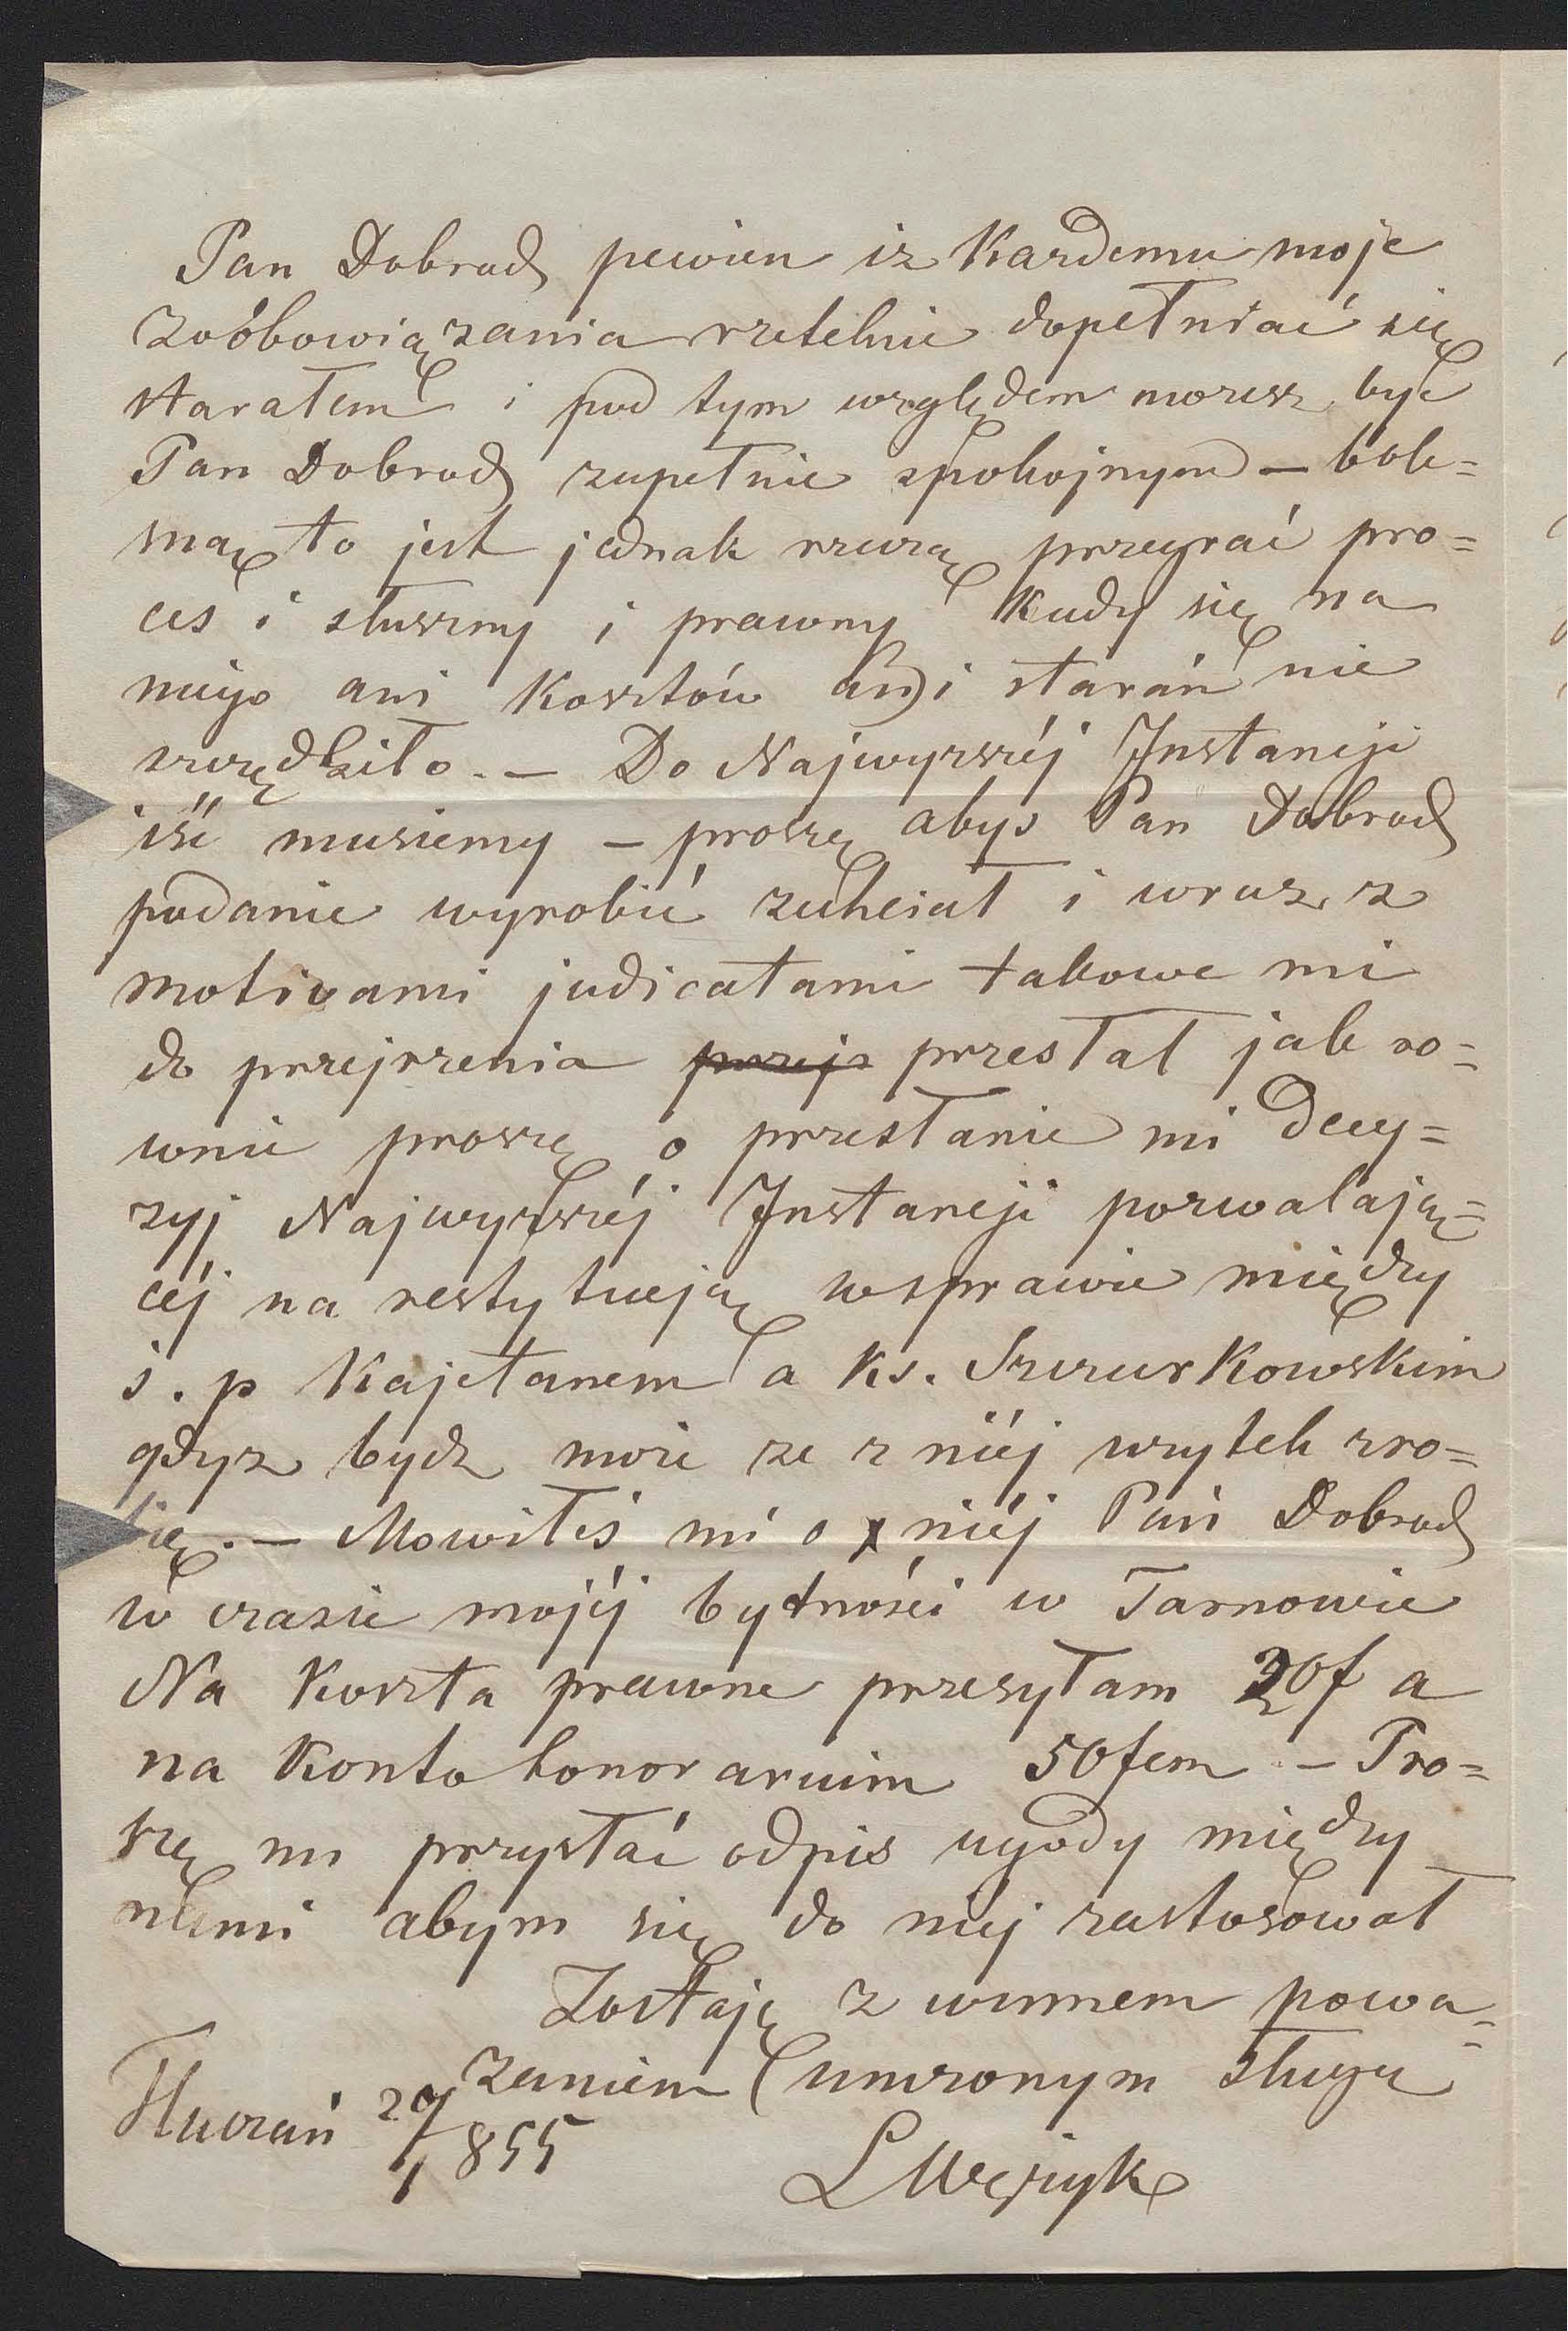 Pan Dobrodz pewien iz Kazdemu moje
zoóbowiązania rzetelnie dopełniać się
starałem i pod tym względem mozesz być
Pan Dobrodz zupełnie spokojnym – bole=
sną to jest jednak rzeczą przegrać pro=
ces i słuszny i prawny Kiedy się na
niego ani Kosztów ani starań nie
szczędziło. – Do Najwyzszéj Instancji
iść musiemy – proszę abyś Pan Dobrodz
podanie wyrobić zechciał i wraz z
motivami judicatami takowe mi
do przejrzenia przesłał jak ro=
wnie proszę o przesłanie mi decy=
zyj Najwyzszéj Instancji pozwalają=
céj na restytucją w sprawie między
ś. p Kajetanem a Ks. Szczurkowskim
gdyz bydz moze ze z niéj uzytek zro=
bię. – Mowiłeś mi o niéj Pan Dobrodz
w czasie mojéj bytności w Tarnowie
Na Koszta prawne przesyłam 20f a
na Konto honorarium 50fcm – Pro=
szę mi przysłać odpis ugody między
nami abym się do niéj zastosował
Zostaję z winnem powa=
zaniem unizonym sługą
Huczań 29/1 855
L Wężyk